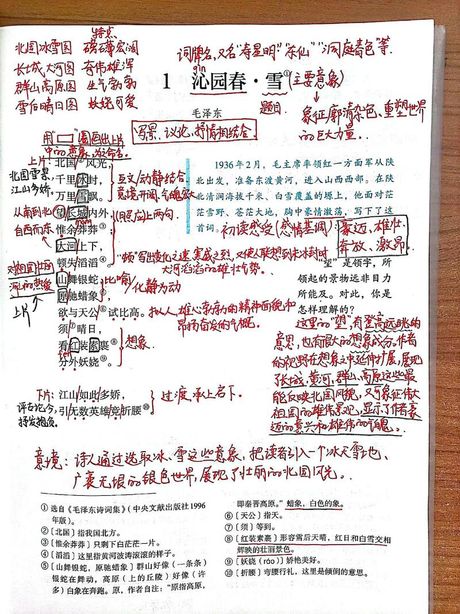 特点
北国冰雪图 磅礴宏阔
长城大河图 奇伟雄浑
群山高原图 生气勃勃
雪后晴日图 妖娆可爱
词牌名,又名"寿星明""东仙""洞庭春色"等.
qìn
1 沁园春·雪①(主要意象)
题目
象征廓清杂色、重塑世界
的巨大力量.
毛泽东
写景、议论、抒情相结合.
上片:
北国②风光,
千里冰封,
万里雪飘。
望长城内外,
惟余莽莽③;
大河上下,
顿失滔滔④。
山舞银蛇,
原驰蜡象⑤,
欲与天公⑥试比高。
须⑦晴日,
看红装素裹⑧,
分外妖娆⑨。
北国雪景,
江山多娇,
从南到北
自西而东
上片
互文/动静结合,
意境开阔,气魄宏大
(照应上两句.
比喻
化静为动
拟人
想象
1936年2月,毛主席率领红一方面军从陕
北出发,准备东渡黄河,进入山西西部。在陕
北清涧海拔千米、白雪覆盖的塬上,他面对茫
茫雪野、苍茫大地,胸中豪情激荡,写下了这
首词。
初读感受(感情基调)
豪迈、雄壮
奔放、激昂
"望"是领字,所
领起的景物远非目力
所能及。对此,你是
怎样理解的?
这里的"望",有登高远眺的
意思,也有很大的想象成分.作者
的视野在想象之中延伸扩展,展现
了长城、黄河、群山、高原这些最
能反映北国风貌,又可象征伟大
祖国的雄伟景观,显示了作者豪
迈的意兴和雄伟的气魄.
下片:
江山如此多娇,
引无数英雄竞折腰⑩。
评古论今,
抒发抱负
过渡,承上启下.
意境:诗人通过选取冰、雪这些意象,把读者引入一个冰天雪地、
广袤无垠的银色世界,展现了壮丽的北国风光.
①选自《毛泽东诗词集》(中央文献出版社1996
年版)。
②〔北国〕指我国北方。
③〔惟余莽莽〕只剩下白茫茫一片。
④〔滔滔〕这里指黄河波涛滚滚的样子。
⑤〔山舞银蛇,原驰蜡象〕群山好像(一条条)
银蛇在舞动。高原(上的丘陵)好像(许
多)白象在奔跑。原,作者自注:"原指高原,
即秦晋高原。"蜡象,白色的象。
⑥〔天公〕指天。
⑦〔须〕等到。
⑧〔红装素裹〕形容雪后天晴,红日和白雪交相
辉映的壮丽景色。
⑨〔妖娆(ráo)〕娇艳美好。
⑩〔折腰〕弯腰行礼,这里是倾倒的意思。